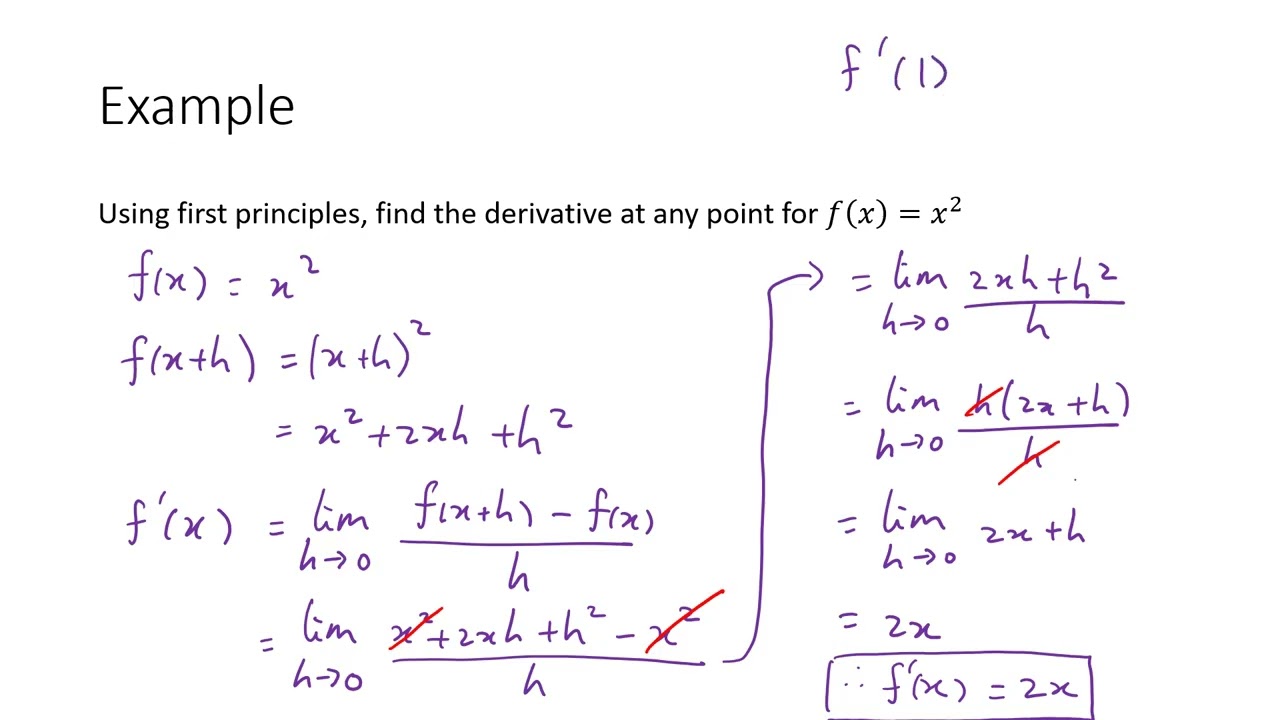 f'(1)
Example
Using first principles, find the derivative at any point for f(x) = x²
f(x) = x²
f(x+h) = (x+h)²
= x² + 2xh + h²
f'(x) = lim h→0 (f(x+h) − f(x)) / h
= lim h→0 (x² + 2xh + h² − x²) / h
= lim h→0 (2xh + h²) / h
= lim h→0 h(2x + h) / h
= lim h→0 2x + h
= 2x
∴ f'(x) = 2x